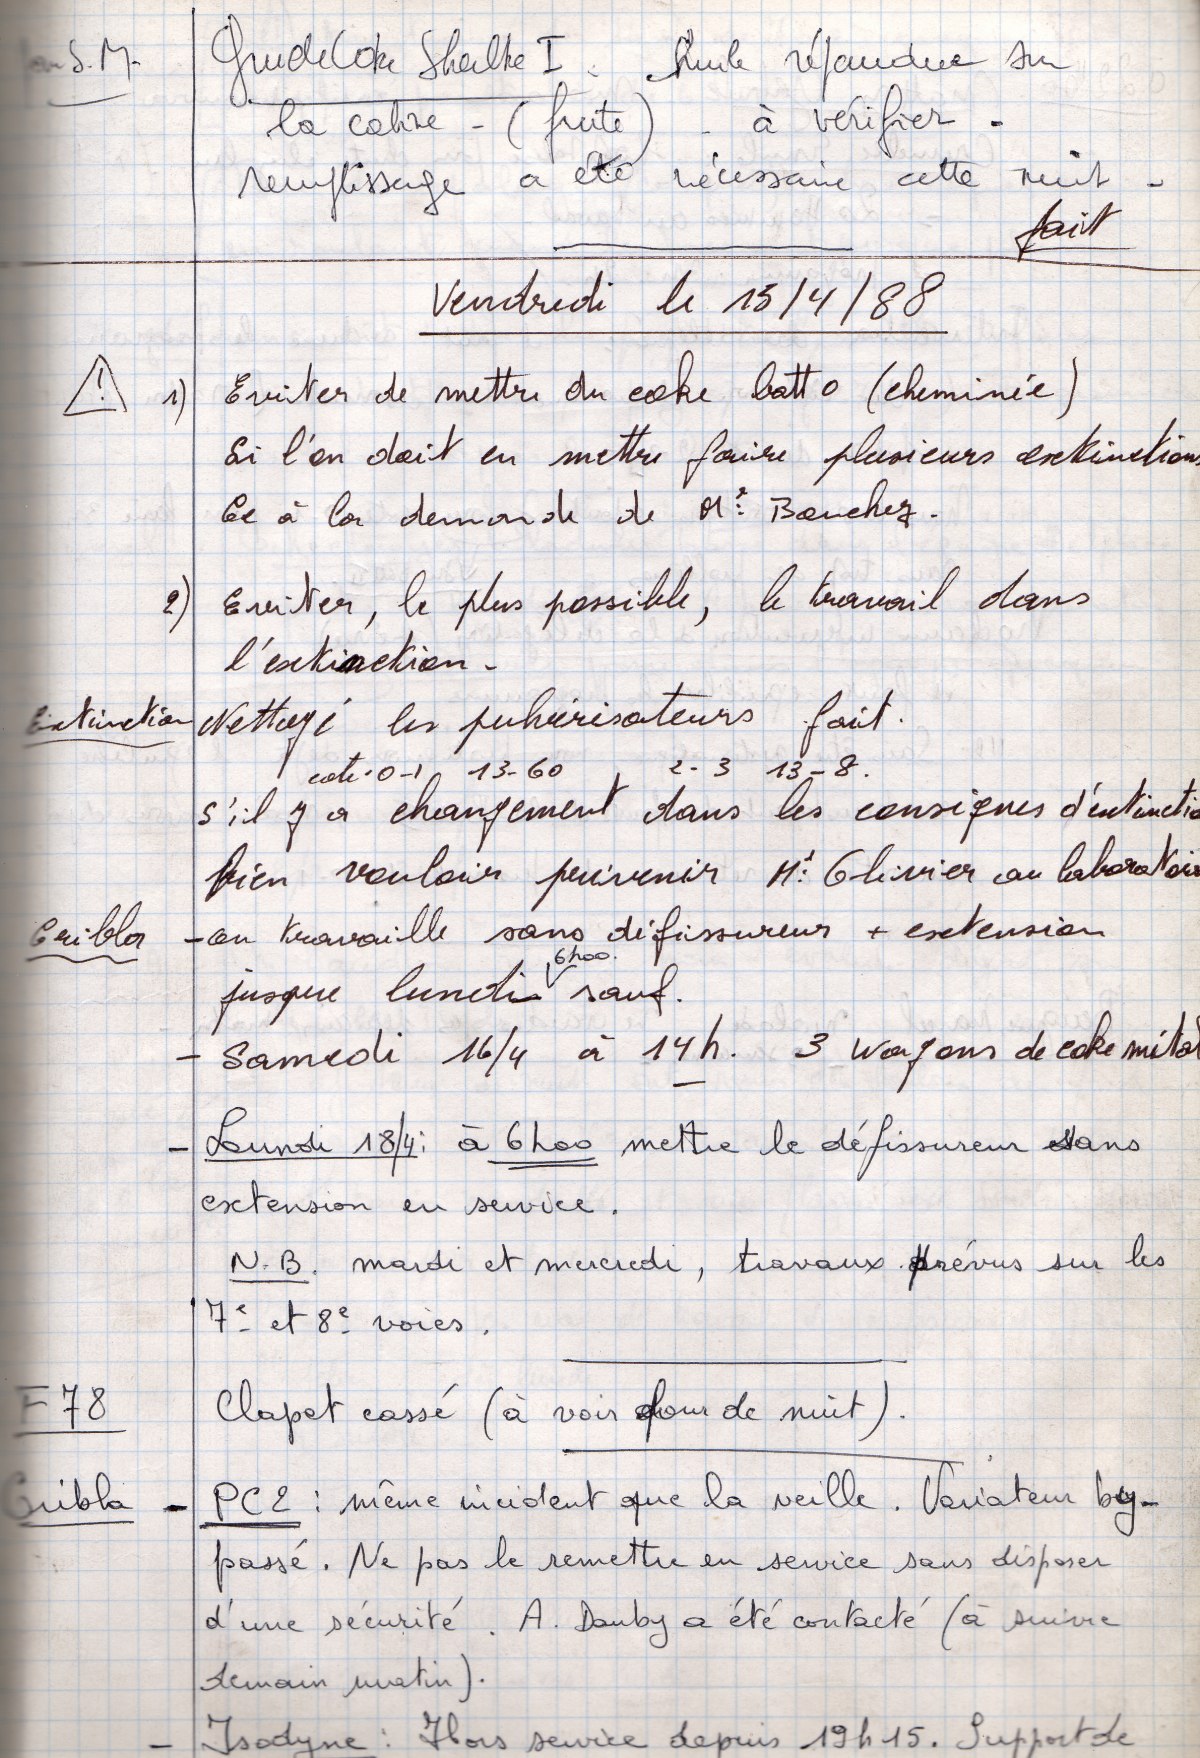 S.M. Guide Coke Shalke I. Huile répandue sur
la cabine - (fuite) - à vérifier -
remplissage a été nécessaire cette nuit -
fait
Vendredi le 15/4/88
! 1) Eviter de mettre du coke batt 0 (cheminée)
Si l'on doit en mettre faire plusieurs extinctions
Ce à la demande de Mr: Bouchez.
2) Eviter, le plus possible, le travail dans
l'extinction -
Extinction Nettoyé les pulvérisateurs fait.
coté 0-1 13-60 , 2-3 13-8.
S'il y a changement dans les consignes d'extinctio
bien vouloir prévenir Mr: Olivier au laboratoir
Cribla - on travaille sans défissureur + extension
6h00.
jusque lundi sauf.
- Samedi 16/4 à 14h. 3 wagons de coke métal
- Lundi 18/4: à 6h00 mettre le défissureur sans
extension en service.
N.B. mardi et mercredi, travaux prévus sur les
7e et 8e voies.
F78 Clapet cassé (à voir four de nuit).
Cribla - PC2 : même incident que la veille. Variateur by-
passé. Ne pas le remettre en service sans disposer
d'une sécurité. A. Dauby a été contacté (à suivre
demain matin).
- Isodyne : Hors service depuis 19h15. Support de